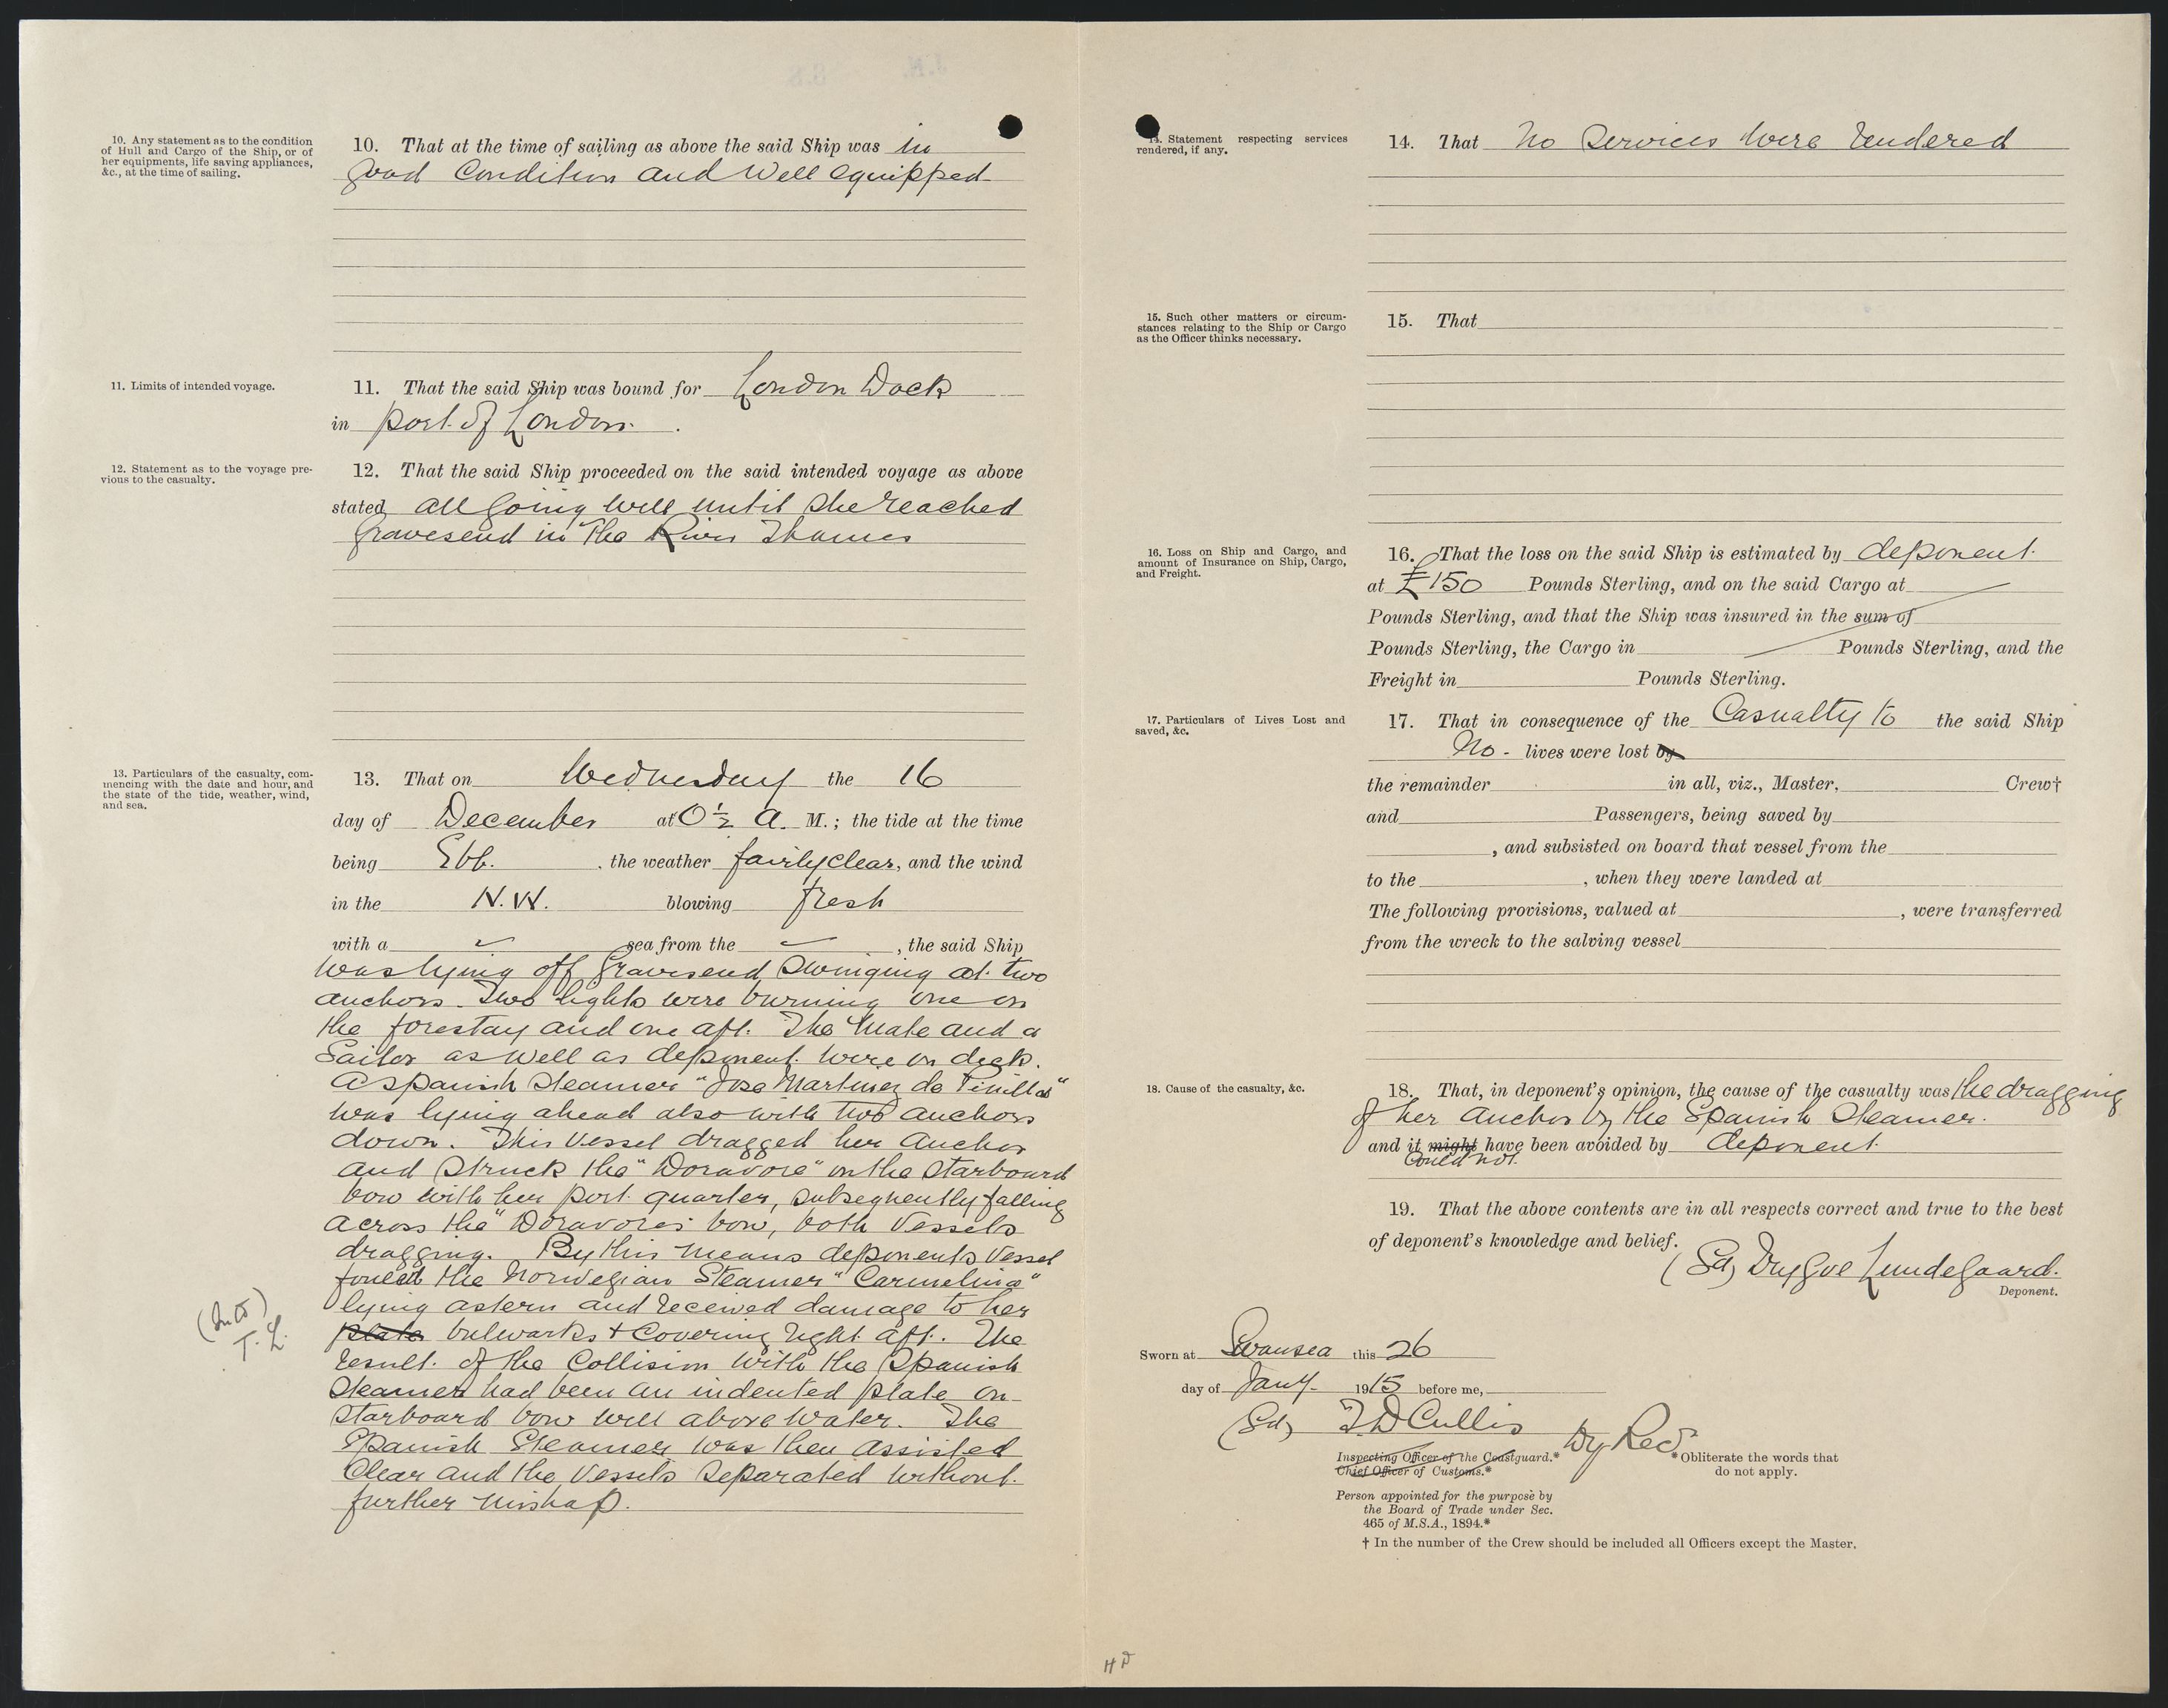 10. Any statement as to the condition
of Hull and Cargo of the Ship, or of
her equipments, life saving appliances,
&c., at the time of sailing.
10. That at the time of sailing as above the said Ship was in
good Condition and Well equipped
11. Limits of intended voyage.
11. That the said Ship was bound for London Dock
in port of London.
12. Statement as to the voyage pre-
vious to the casualty.
12. That the said Ship proceeded on the said intended voyage as above
stated all going well until she reached
Gravesend in the River Thames
13. Particulars of the casualty, com-
mencing with the date and hour, and
the state of the tide, weather, wind,
and sea.
13. That on Wednesday the 16
day of December at 0½ A. M.; the tide at the time
being Ebb. , the weather fairly clear, and the wind
in the N.W. blowing fresh
with a sea from the , the said Ship
was lying off Gravesend, swinging at two
anchors. Two lights were burning one on
the forestay and one aft. The Mate and a
Sailor as well as deponent were on deck.
A Spanish Steamer "Jose Martinez de Pinillos"
was lying ahead also with two anchors
down. This Vessel dragged her Anchor
and struck the "Doravore" on the starboard
bow with her port quarter, subsequently falling
across the "Doravores bow, both Vessels
dragging. By this means deponents Vessel
fouled the Norwegian Steamer "Carmelina"
lying astern and received damage to her
(Intd)
T. L.
plate bulwarks + Covering right aft. The
result of the Collision with the Spanish
Steamer had been an indented plate on
starboard bow well above water. The
Spanish Steamer was then assisted
Clear and the Vessels separated without
further mishap.
14. Statement respecting services
rendered, if any.
14. That No Services were rendered
15. Such other matters or circum-
stances relating to the Ship or Cargo
as the Officer thinks necessary.
15. That
16. Loss on Ship and Cargo, and
amount of Insurance on Ship, Cargo,
and Freight.
16. That the loss on the said Ship is estimated by deponent
at £150 Pounds Sterling, and on the said Cargo at
Pounds Sterling, and that the Ship was insured in the sum of
Pounds Sterling, the Cargo in Pounds Sterling, and the
Freight in Pounds Sterling.
17. Particulars of Lives Lost and
saved, &c.
17. That in consequence of the Casualty to the said Ship
No - lives were lost by
the remainder in all, viz., Master, Crew†
and Passengers, being saved by
, and subsisted on board that vessel from the
to the , when they were landed at
The following provisions, valued at , were transferred
from the wreck to the salving vessel
18. Cause of the casualty, &c.
18. That, in deponent's opinion, the cause of the casualty was the dragging
of her Anchor by the Spanish Steamer.
and it might have been avoided by deponent
Could not
19. That the above contents are in all respects correct and true to the best
of deponent's knowledge and belief.
(Sd) Trygve Lundegaard.
Deponent.
Sworn at Swansea this 26
day of Jany. 1915 before me,
(Sd) T. D Cullis Dy Recr
Inspecting Officer of the Coastguard.*
Chief Officer of Customs.*
*Obliterate the words that
do not apply.
Person appointed for the purpose by
the Board of Trade under Sec.
465 of M.S.A., 1894.*
† In the number of the Crew should be included all Officers except the Master.